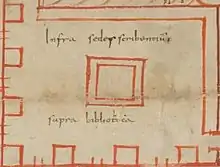 Infra sedes scribentiũ
supra bibliotheca